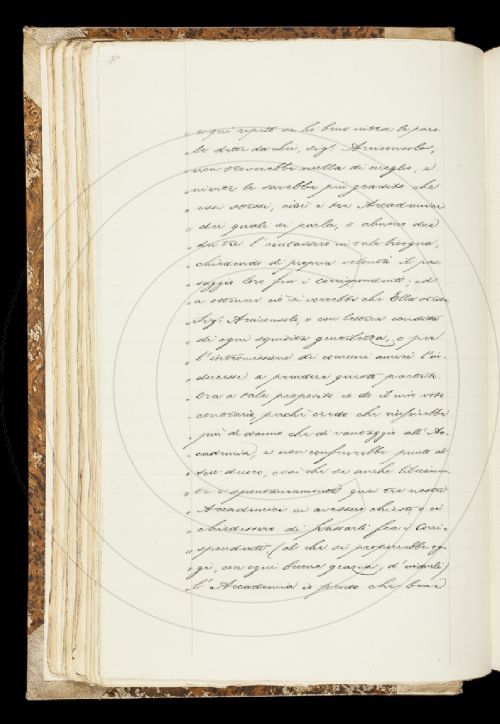 154
" e qui ripeto se ho bene intese le paro-
" le dette da Lei, sig.r Arciconsolo,
" non troverebbe nulla di meglio, e
" niente le sarebbe più gradito che
" essi stessi, cioè i tre Accademici
" dei quali si parla, o almeno due
" dei tre l'aiutassero in tale bisogna,
" chiedendo di propria volontà il pas-
" saggio loro fra i corrispondenti; ed
" a ottenere ciò si vorrebbe che Ella stesso
" Sig.r Arciconsolo, o con lettera condita
" di ogni squisita gentilezza, o per
" l'intromissione di comuni amici l'in-
" ducesse a prendere questo partito.
" Ora a tale proposito io do il mio voto
" contrario, perchè credo che riuscirebbe
" più di danno che di vantaggio all'Ac-
" cademia, e non confarebbe punto al
" suo decoro, così che se anche liberamen-
" te e spontaneamente quei tre nostri
" Accademici ci avessero chiesto, o ci
" chiedessero di passarli fra i Corri-
" spondenti (il che si proporrebbe og-
" gi, con ogni buona grazia, d'indurli)
" l'Accademia io penso che bene